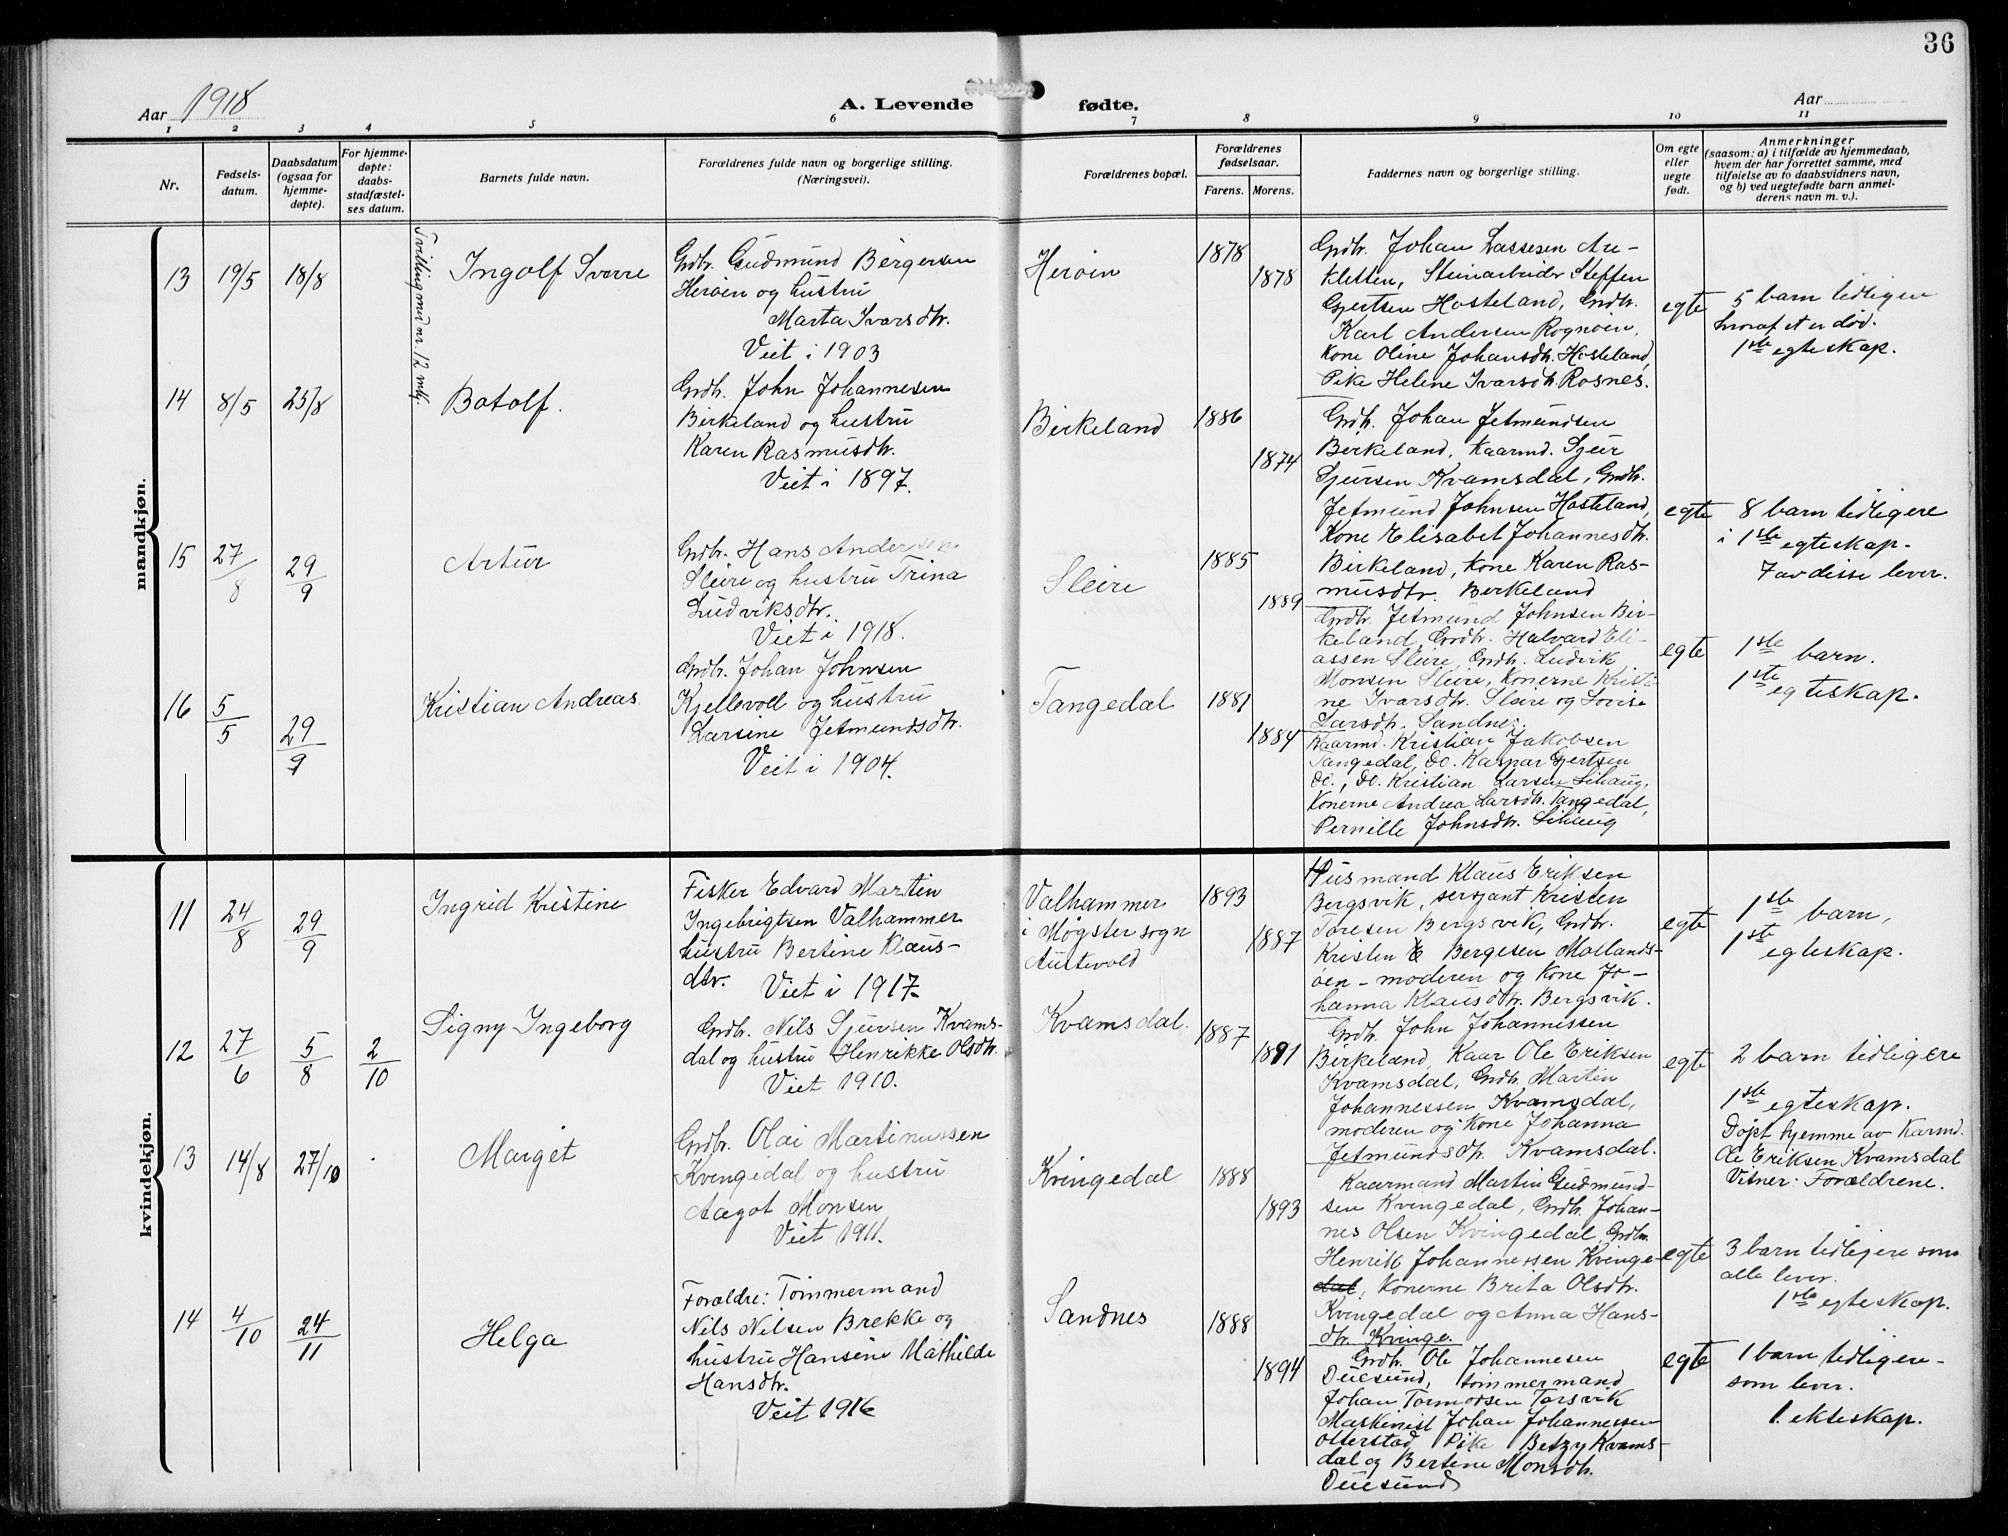 36
Aar 1918
A. Levende fødte.
Aar
1 2 3 4 5 6 7 8 9 10 11
Nr.
Fødsels-
datum.
Daabsdatum
(ogsaa for
hjemme-
døpte).
For hjemme-
døpte:
daabs-
stadfæstel-
ses datum.
Barnets fulde navn.
Forældrenes fulde navn og borgerlige stilling.
(Næringsvei).
Forældrenes bopæl.
Forældrenes
fødselsaar.
Farens. Morens.
Faddernes navn og borgerlige stilling.
Om egte
eller
uegte
født.
Anmerkninger
(saasom: a) i tilfælde av hjemmedaab,
hvem der har forrettet samme, med
tilføielse av to daabsvidners navn,
og b) ved uegtefødte barn anmel-
derens navn m. v.).
mandkjøn.
13
19/5
18/8
Tvilling med nr. 12 mk.
Ingolf Sverre
Grdbr. Gudmund Bergersen
Herøen og hustru
Marta Ivarsdtr.
Viet i 1903
Herøen
1878
1878
Grdbr. Johan Lassesen Are-
kletten, Steinarbeider Steffen
Gjertsen Hosteland, Grdbr.
Karl Andersen Rognøen,
Kone Oline Johansdtr. Hosteland,
Pike Helene Ivarsdtr. Rosnes.
egte
5 barn tidligere
hvoraf et er død.
1ste egteskap.
14
8/5
25/8
Botolf.
Grdb. John Johannesen
Birkeland og hustru
Karen Rasmusdtr.
Viet i 1897.
Birkeland
1886
1874
Grdb. Johan Jetmundsen
Birkeland, Kaarmd. Sjur
Sjursen Kvamsdal, Grdb.
Jetmund Johnsen Hosteland,
Kone Elisabet Johannesdtr.
Birkeland, Kone Karen Ras-
musdtr. Birkeland
egte
8 barn tidligere
i 1ste egteskap.
7 av disse lever.
15
27/8
29/9
Artur
Grdbr. Hans Andersen
Sleire og hustru Trina
Ludviksdtr.
Viet i 1918.
Sleire
1885
1889
Grdbr. Jetmund Johnsen Bir-
keland, Grdbr. Halvard Eli-
assen Sleire, Grdb. Ludvik
Monsen Sleire, Konerne Kristi-
ne Ivarsdtr. Sleire og Lovise
Larsdtr. Sandnes.
egte
1ste barn.
1ste egteskap.
16
5/5
29/9
Kristian Andreas
Grdbr. Johan Johnsen
Kjellevold og hustru
Larsine Jetmundsdtr.
Viet i 1904.
Tangedal
1881
1884
Kaarmd. Kristian Jakobsen
Tangedal, Do. Kaspar Gjertsen
Do., Do. Kristian Larsen Lihaug,
Konerne Andrea Larsdtr. Tangedal,
Pernille Johnsdtr. Lihaug
kvindekjøn.
11
24/8
29/9
Ingrid Kristine
Fisker Edvard Martin
Ingebrigtsen Valhammer
hustru Bertine Klaus-
dtr. Viet i 1917.
Valhammer
i Møgster sogn
Austevold
1893
1887
Husmand Klaus Eriksen
Bergsvik, sersjant Kristen
Toresen Bergsvik, Grdbr.
Kristen E Bergesen Mollands-
øen - moderen og Kone Jo-
hanna Klausdtr. Bergsvik.
egte
1ste barn,
1ste egteskap.
12
27/6
5/8
2/10
Signy Ingeborg
Grdb. Nils Sjursen Kvams-
dal og hustru Henrikke Olsdtr.
Viet 1910.
Kvamsdal.
1887
1891
Grdb. John Johannissen
Birkeland, Kaar Ole Eriksen
Kvamsdal, Grdb. Martin
Johannessen Kvamsdal,
moderen og Kone Johanna
Jetmundsdtr. Kvamsdal.
egte
2 barn tidligere
1ste egteskap.
Døpt hjemme av Karmd.
Ole Eriksen Kvamsdal
Vitner: Forældrene.
13
14/8
27/10
Marget
Grdbr. Olai Martinussen
Kvingedal og hustru
Aagot Monsen
Viet 1911.
Kvingedal
1888
1893
Kaarmand Martin Gudmund-
sen Kvingedal, Grdb. Johan-
nes Olsen Kvingedal, Grdbr.
Henrik Johannessen Kvinge-
dal, Konerne Brita Olsdtr.
Kvingedal og Anna Hans-
dtr. Kvinge.
egte
3 barn tidligere som
alle lever.
1ste egteskap.
14
4/10
24/11
Helga
Foraldre: Tømmermand
Nils Nilsen Brekke og
hustru Hansine Mathilde
Hansdtr.
Viet 1916
Sandnes
1888
1894
Grdb. Ole Johannesen
Duesund, tømmermand
Johan Tormodsen Torsvik
Maskinist Johan Johannessen
Otterstad Pike Betzy Kvams-
dal og Bertine Monsdtr.
Duesund
egte
1 barn tidligere-
som lever.
1. ekteskap.